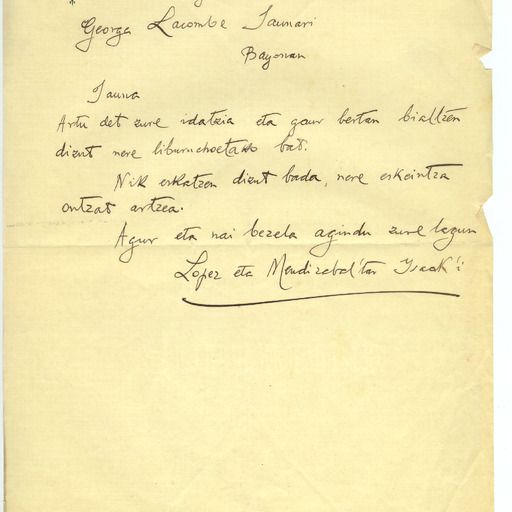 George Lacombe Jaunari
Bayonan
Jauna
Artu det zure idatzia eta gaur bertan bialtzen
dizut nere liburuchoetako bat.
Nik eskatzen dizut bada, nere eskeintza
ontzat artzea.
Agur eta nai bezela agindu zure lagun
Lopez eta Mendizabal'tar Ysaak'i